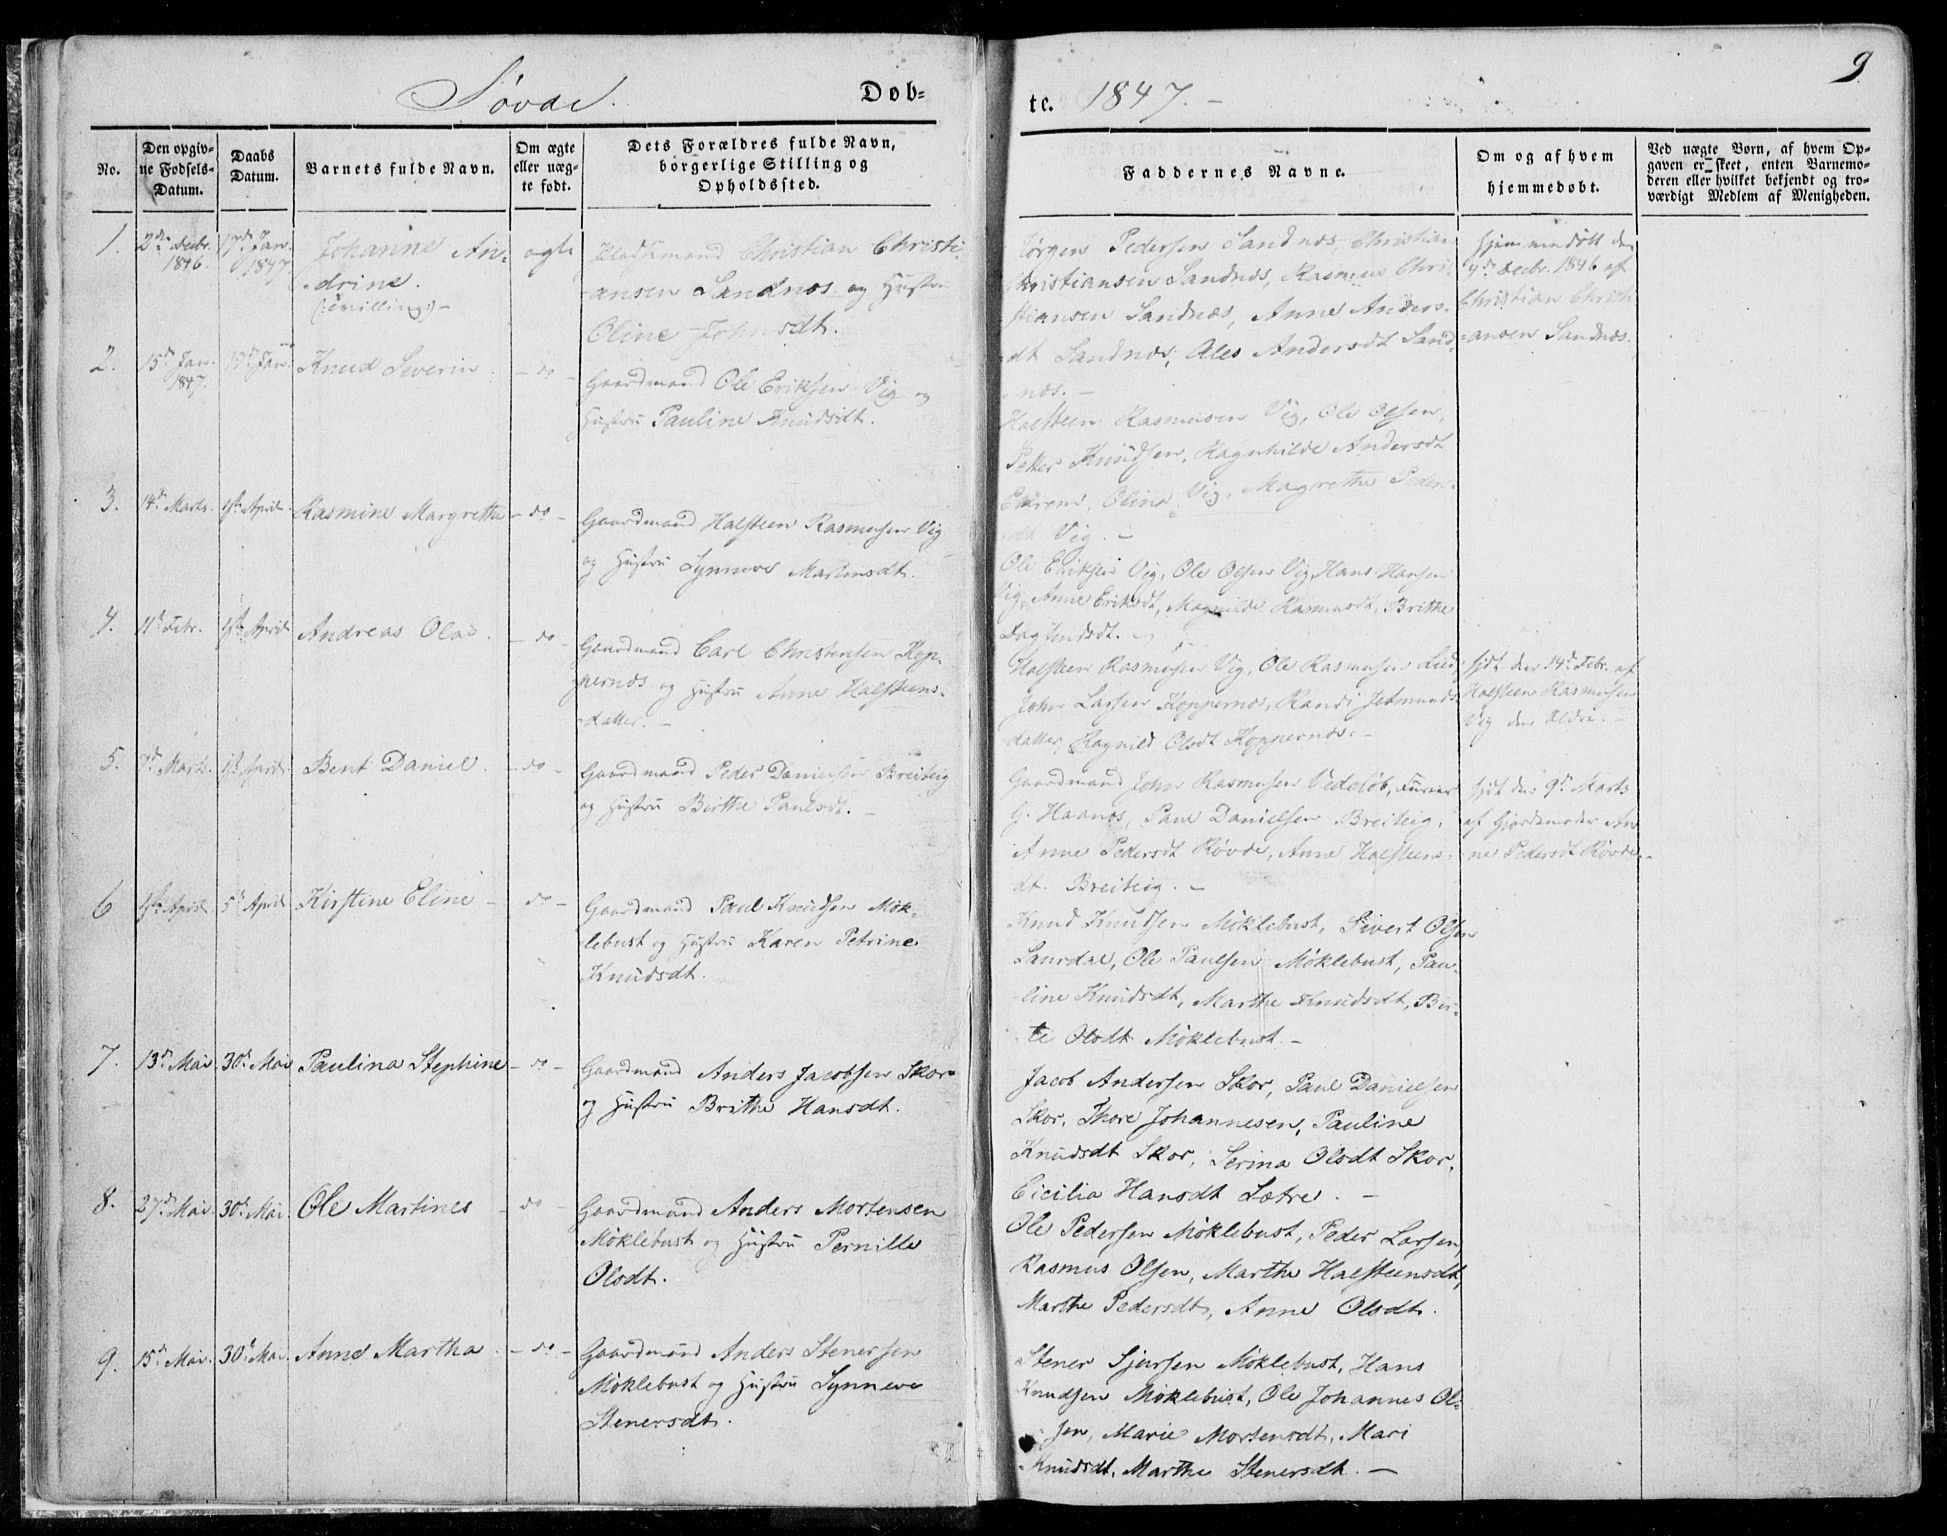 9
Søvde.
Døb-
te. 1847.-
No.
Den opgiv-
ne Fødsels-
Datum.
Daabs
Datum.
Barnets fulde Navn.
Om ægte
eller uæg-
te født.
Dets Forældres fulde Navn,
borgerlige Stilling og
Opholdssted.
Faddernes Navne.
Om og af hvem
hjemmedøbt.
Ved uægte Børn, af hvem Op-
gaven er skeet, enten Barnemo-
deren eller hvilket bekjendt og tro-
værdigt Medlem af Menigheden.
1.
2de Decbr.
1846.
17de Jan.
1847
Johanne An-
drine.
(:Tvilling:)-
ægte
Pladsmand Christian Christi-
ansen Sandnæs og Hustru
Oline Johnsdt.
Jørgen Pedersen Sandnæs, Christian
Christiansen Sandnæs, Rasmus Chri-
stiansen Sandnæs, Anne Anders-
dt Sandnæs, Ales Andersdt Sand-
næs.-
Hjemmedøbt den
4de Decbr. 1846 af
Christian Christi-
ansen Sandnæs.
2.
15de Jan.
1847.
17de Jan.
Knud Severin.
- do -
Gaardmand Ole Eriksen Vig og
Hustru Pauline Knudsdt.
Halsteen Rasmusen Vig, Ole Olsen,
Petter Knudsen, Ragnhilde Andersdt
Ekrem, Olina Vig, Magrethe Peders-
dt Vig.-
3.
14de Marts.
1ste April
Rasmine Margrethe
- do -
Gaardmand Halsteen Rasmusen Vig
og Hustru Synneve Martinsdt.
Ole Eriksen Vig, Ole Olsen Vig, Hans Hansen
Vig, Anne Eriksdt, Magnilde Rasmusdt, Brithe
Dagfindsdt.-
4.
11te Febr.
1ste April
Andreas Olai.
- do -
Gaardmand Carl Christensen Kop-
pernæs og Hustru Anne Halsteens-
datter.-
Halsteen Rasmusen Vig, Ole Rasmusen Lied,
John Larsen Koppernæs, Randi Jetmunds-
datter, Ragnild Olsdt Koppernæs.-
hjdt den 14de Febr. af
Halsteen Rasmusen
Vig den Ældre.-
5.
7de Marts.
1ste April.
Bent Daniel.
- do -
Gaardmand Peder Danielsen Breiteig
og Hustru Birthe Paulsdt.-
Gaardmand John Rasmusen Vedeløb, Furier
G. Haanæs, Paul Danielsen Breiteig,
Anne Pedersdt Røvde, Anne Halsteens-
dt. Breiteig.-
hjdt den 9de Marts
af Gjordemoder An-
ne Pedersdt Røvde.-
6
1ste April.
5te April
Kirstine Eline -
do -
Gaardmand Paul Knudsen Møk-
lebust og Hustru Karen Petrine
Knudsdt.
Knud Knudsen Møklebust, Sivert Olsen
Saurdal, Ole Paulsen Møklebust, Pau-
line Knudsdt, Marthe Knudsdt, Bir-
te Olsdt Møklebust.-
7.
13de Mai
30te Mai
Paulina Stephine
- do -
Gaardmand Anders Jacobsen Skor
og Hustru Brithe Hansdt.
Jacob Andersen Skor, Paul Danielsen
Skor, Thore Johannesen, Pauline
Knudsdt Skor, Serina Olsdt Skor,
Cicilia Hansdt Sætre.-
8.
27de Mai.
30te Mai.
Ole Martines -
do -
Gaardmand Anders Mortensen
Møklebust og Hustru Pernille
Olsdt.
Ole Pedersen Møklebust, Peder Larsen,
Rasmus Olsen, Marthe Halsteensdt,
Marthe Pedersdt, Anne Olsdt.
9.
15de Mai.
30te Mai.
Anne Martha.
- do -
Gaardmand Anders Stenersen
Møklebust og Hustru Synneve
Stenersdt.
Stener Sjursen Møklebust, Hans
Knudsen Møklebust, Ole Johannes Ol-
sen, Marie Mortensdt, Mari
Knudsdt, Marthe Stenersdt.-